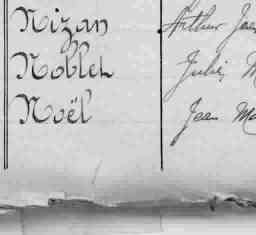 Nizan Arthur Jea
Noblet Jules M
Noël Jean Ma